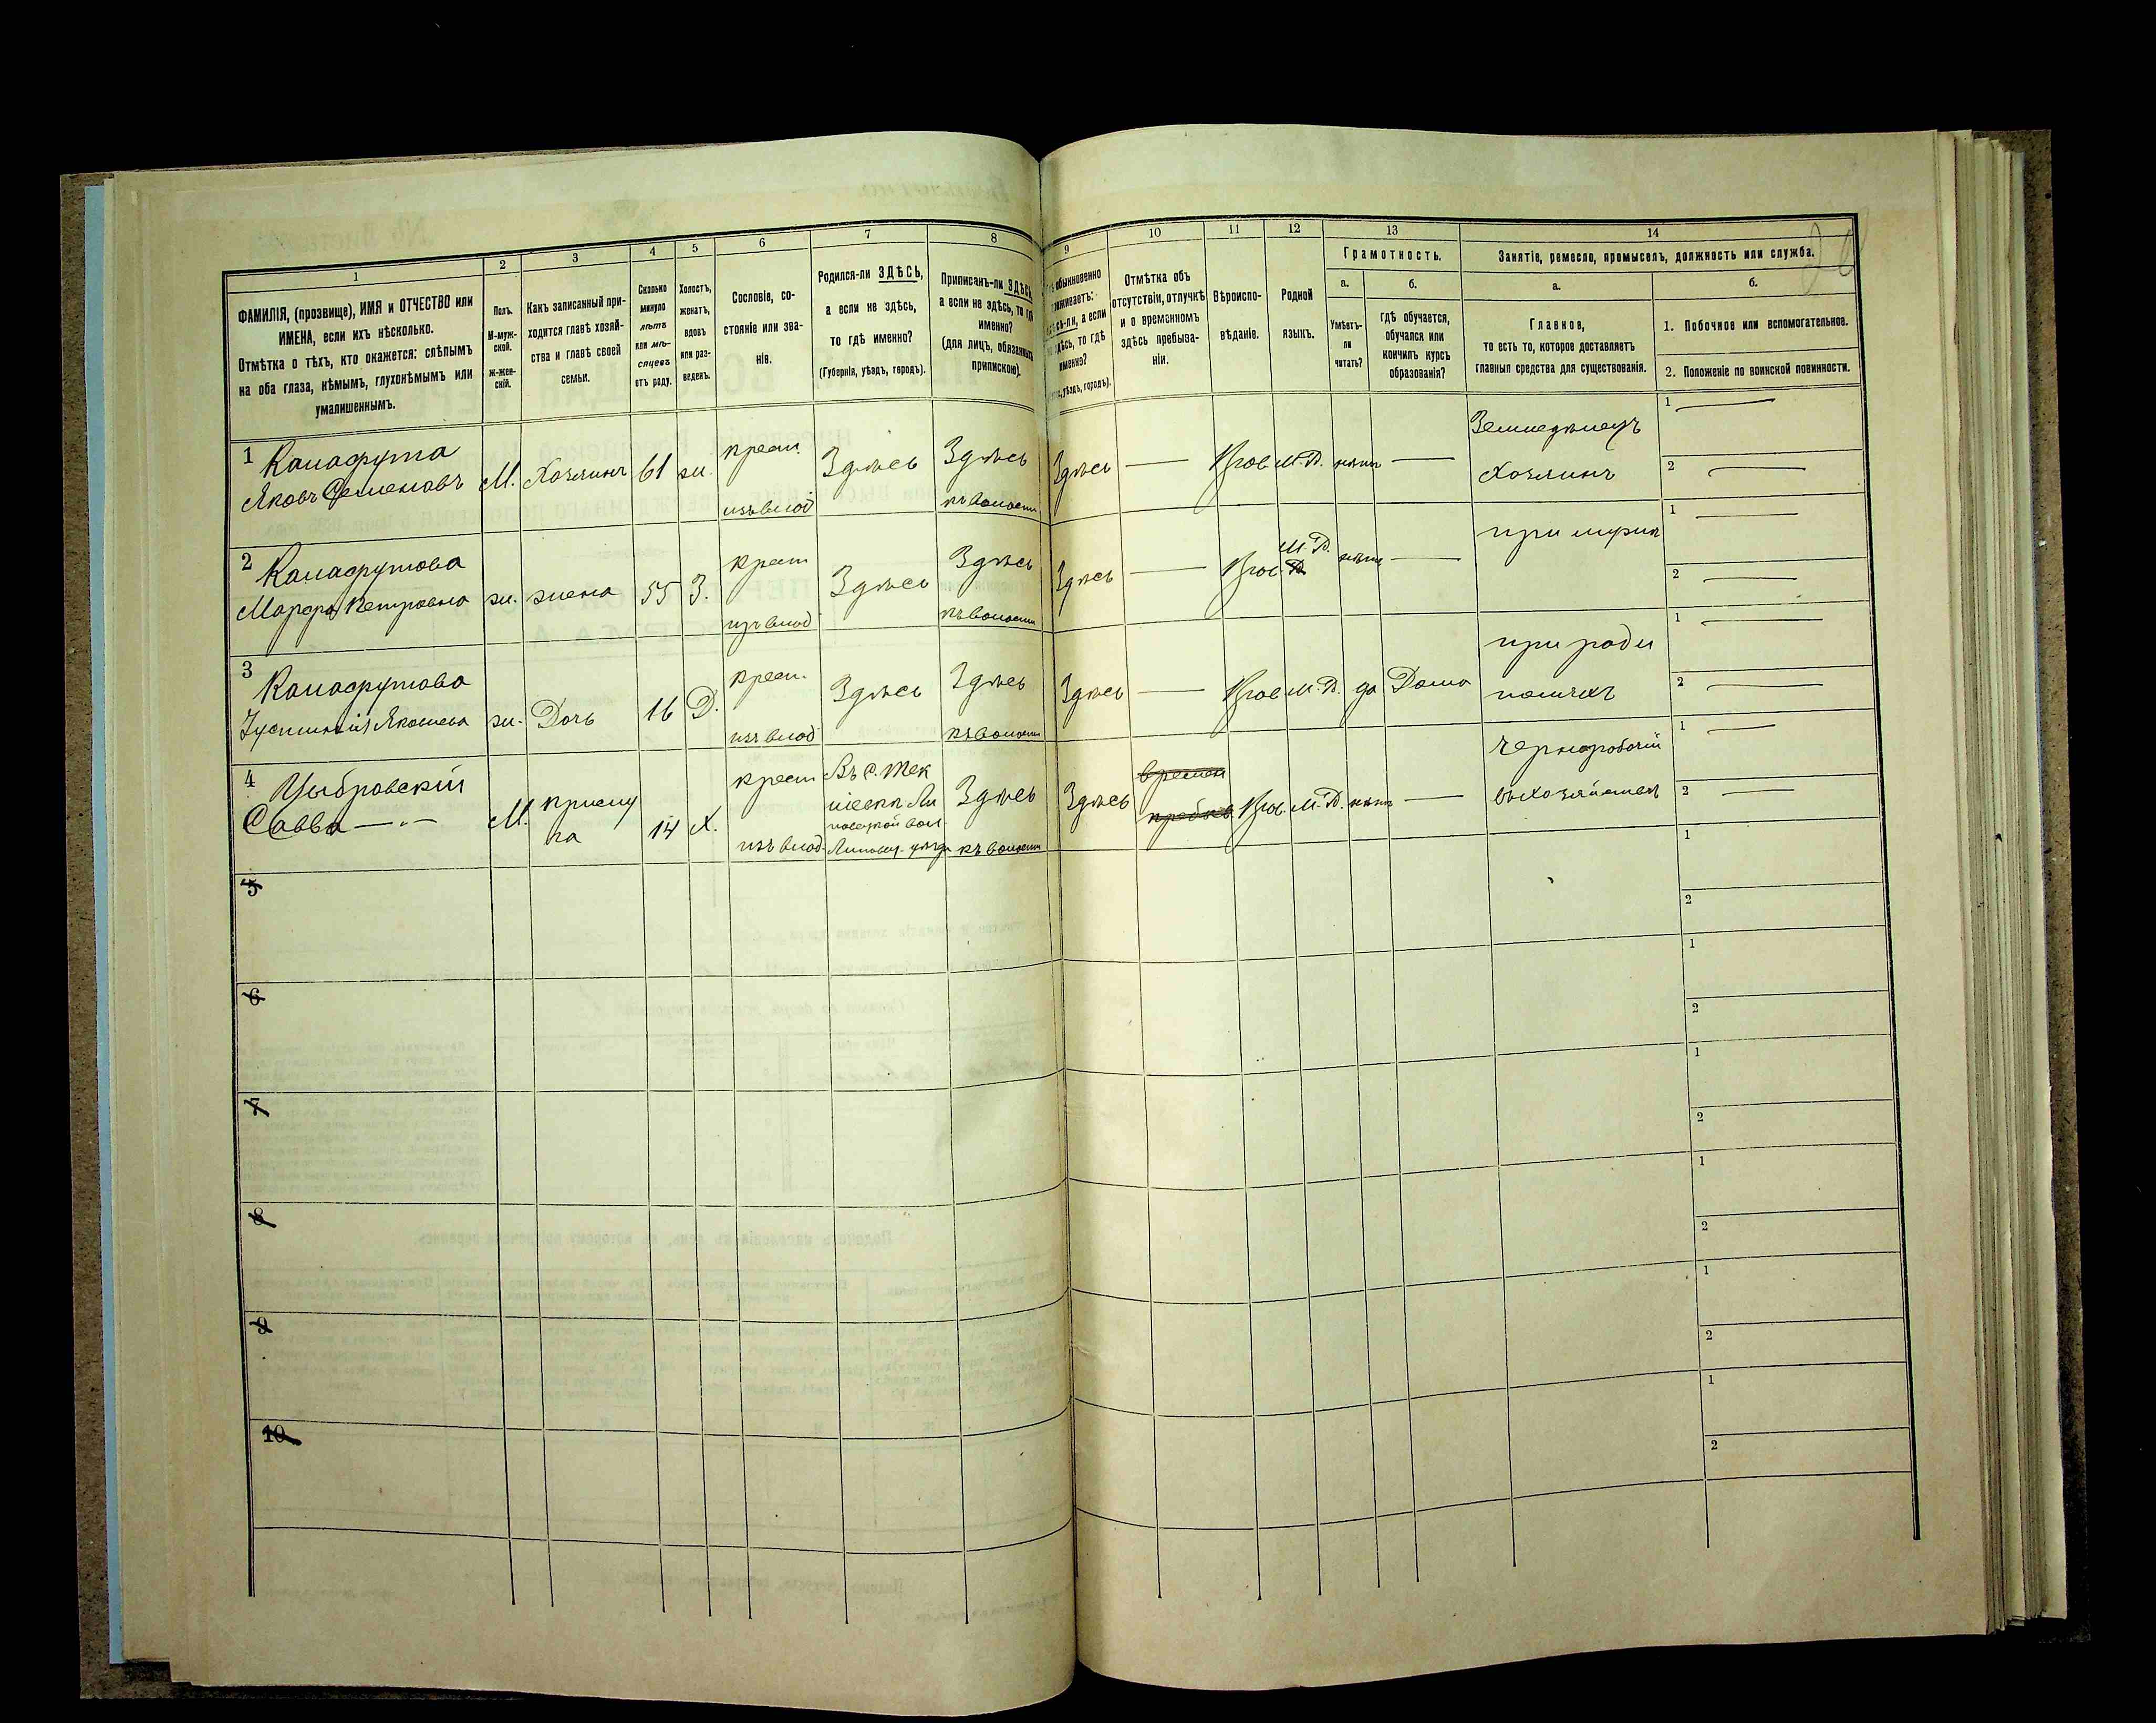 1
2
3
4
5
6
7
8
9
10
11
12
13
14
ФАМИЛІЯ, (прозвище), ИМЯ и ОТЧЕСТВО или
ИМЕНА, если ихъ нѣсколько.
Отмѣтка о тѣхъ, кто окажется: слѣпымъ
на оба глаза, нѣмымъ, глухонѣмымъ или
умалишеннымъ.
Полъ.
М-муж-
ской.
Ж-жен-
скій.
Какъ записанный при-
ходится главѣ хозяй-
ства и главѣ своей
семьи.
Сколько
минуло
лѣтъ
или мѣ-
сяцевъ
отъ роду.
Холостъ,
женатъ,
вдовъ
или раз-
веденъ.
Сословіе, со-
стояніе или зва-
ніе.
Родился-ли ЗДѢСЬ,
а если не здѣсь,
то гдѣ именно?
(Губернія, уѣздъ, городъ).
Приписанъ-ли ЗДѢСЬ,
а если не здѣсь, то гдѣ
именно?
(для лицъ, обязанныхъ
припискою).
обыкновенно
проживаетъ:
здѣсь-ли, а если
не здѣсь, то гдѣ
именно?
уѣздъ, городъ).
Отмѣтка объ
отсутствіи, отлучкѣ
и о временномъ
здѣсь пребыва-
ніи.
Вѣроиспо-
вѣданіе.
Родной
языкъ.
Грамотность.
а.
Умѣетъ-
ли
читать?
б.
гдѣ обучается,
обучался или
кончилъ курсъ
образованія?
Занятіе, ремесло, промыселъ, должность или служба.
а.
Главное,
то есть то, которое доставляетъ
главныя средства для существованія.
б.
1. Побочное или вспомогательное.
2. Положеніе по воинской повинности.
1 Калафута
Яковъ Семеновъ
М.
Хозяинъ
61
ж.
крест.
изъ влад
Здѣсь
Здѣсь
къ волости
Здѣсь
Прав.
М. Р.
нѣтъ
Земледѣлецъ
Хозяинъ
1
2
2 Калафутова
Марфа Петровна
ж.
жена
55
З.
крест
изъ влад
Здѣсь
Здѣсь
къ волости
Здѣсь
Прав.
М. Р.
нѣтъ
при мужѣ
1
2
3 Калафутова
Іустинія Яковлева
ж.
Дочь
16
Д.
крест.
изъ влад
Здѣсь
Здѣсь
къ волости
Здѣсь
Прав
М. Р.
да
Дома
при роди
теляхъ
1
2
4 Цыбровскій
Савва
М.
пріему
ка
14
Х.
крест
изъ влад.
Въ с.
Липовец. уѣзда
Здѣсь
къ волости
Здѣсь
времен
пребыв
Прав.
М. Р.
нѣтъ
чернорабочій
въ хозяйствѣ
1
2
5
1
2
6
1
2
7
1
2
8
1
2
9
1
2
10
1
2